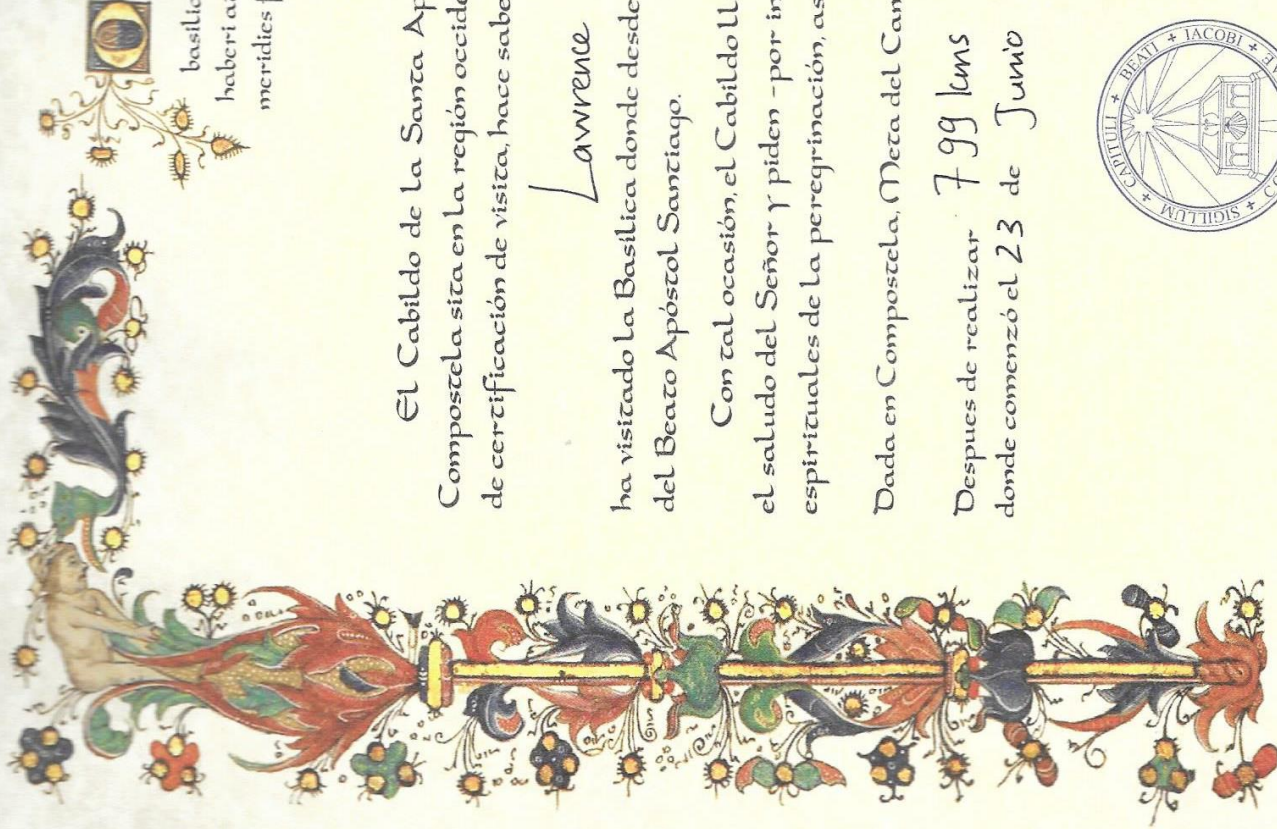 basilic
haberi ai
meridies
El Cabildo de la Santa Ap
Compostela sita en la región occide
de certificación de visita, hace sabe
Lawrence
ha visitado la Basílica donde desde
del Beato Apóstol Santiago.
Con tal ocasión, el Cabildo
el saludo del Señor y piden -por in
espirituales de la peregrinación, as
Dada en Compostela, Meta del Cam
Despues de realizar 799 kms
donde comenzó el 23 de Junio
SIGILLUM + CAPITULI + BEATI + IACOBI +